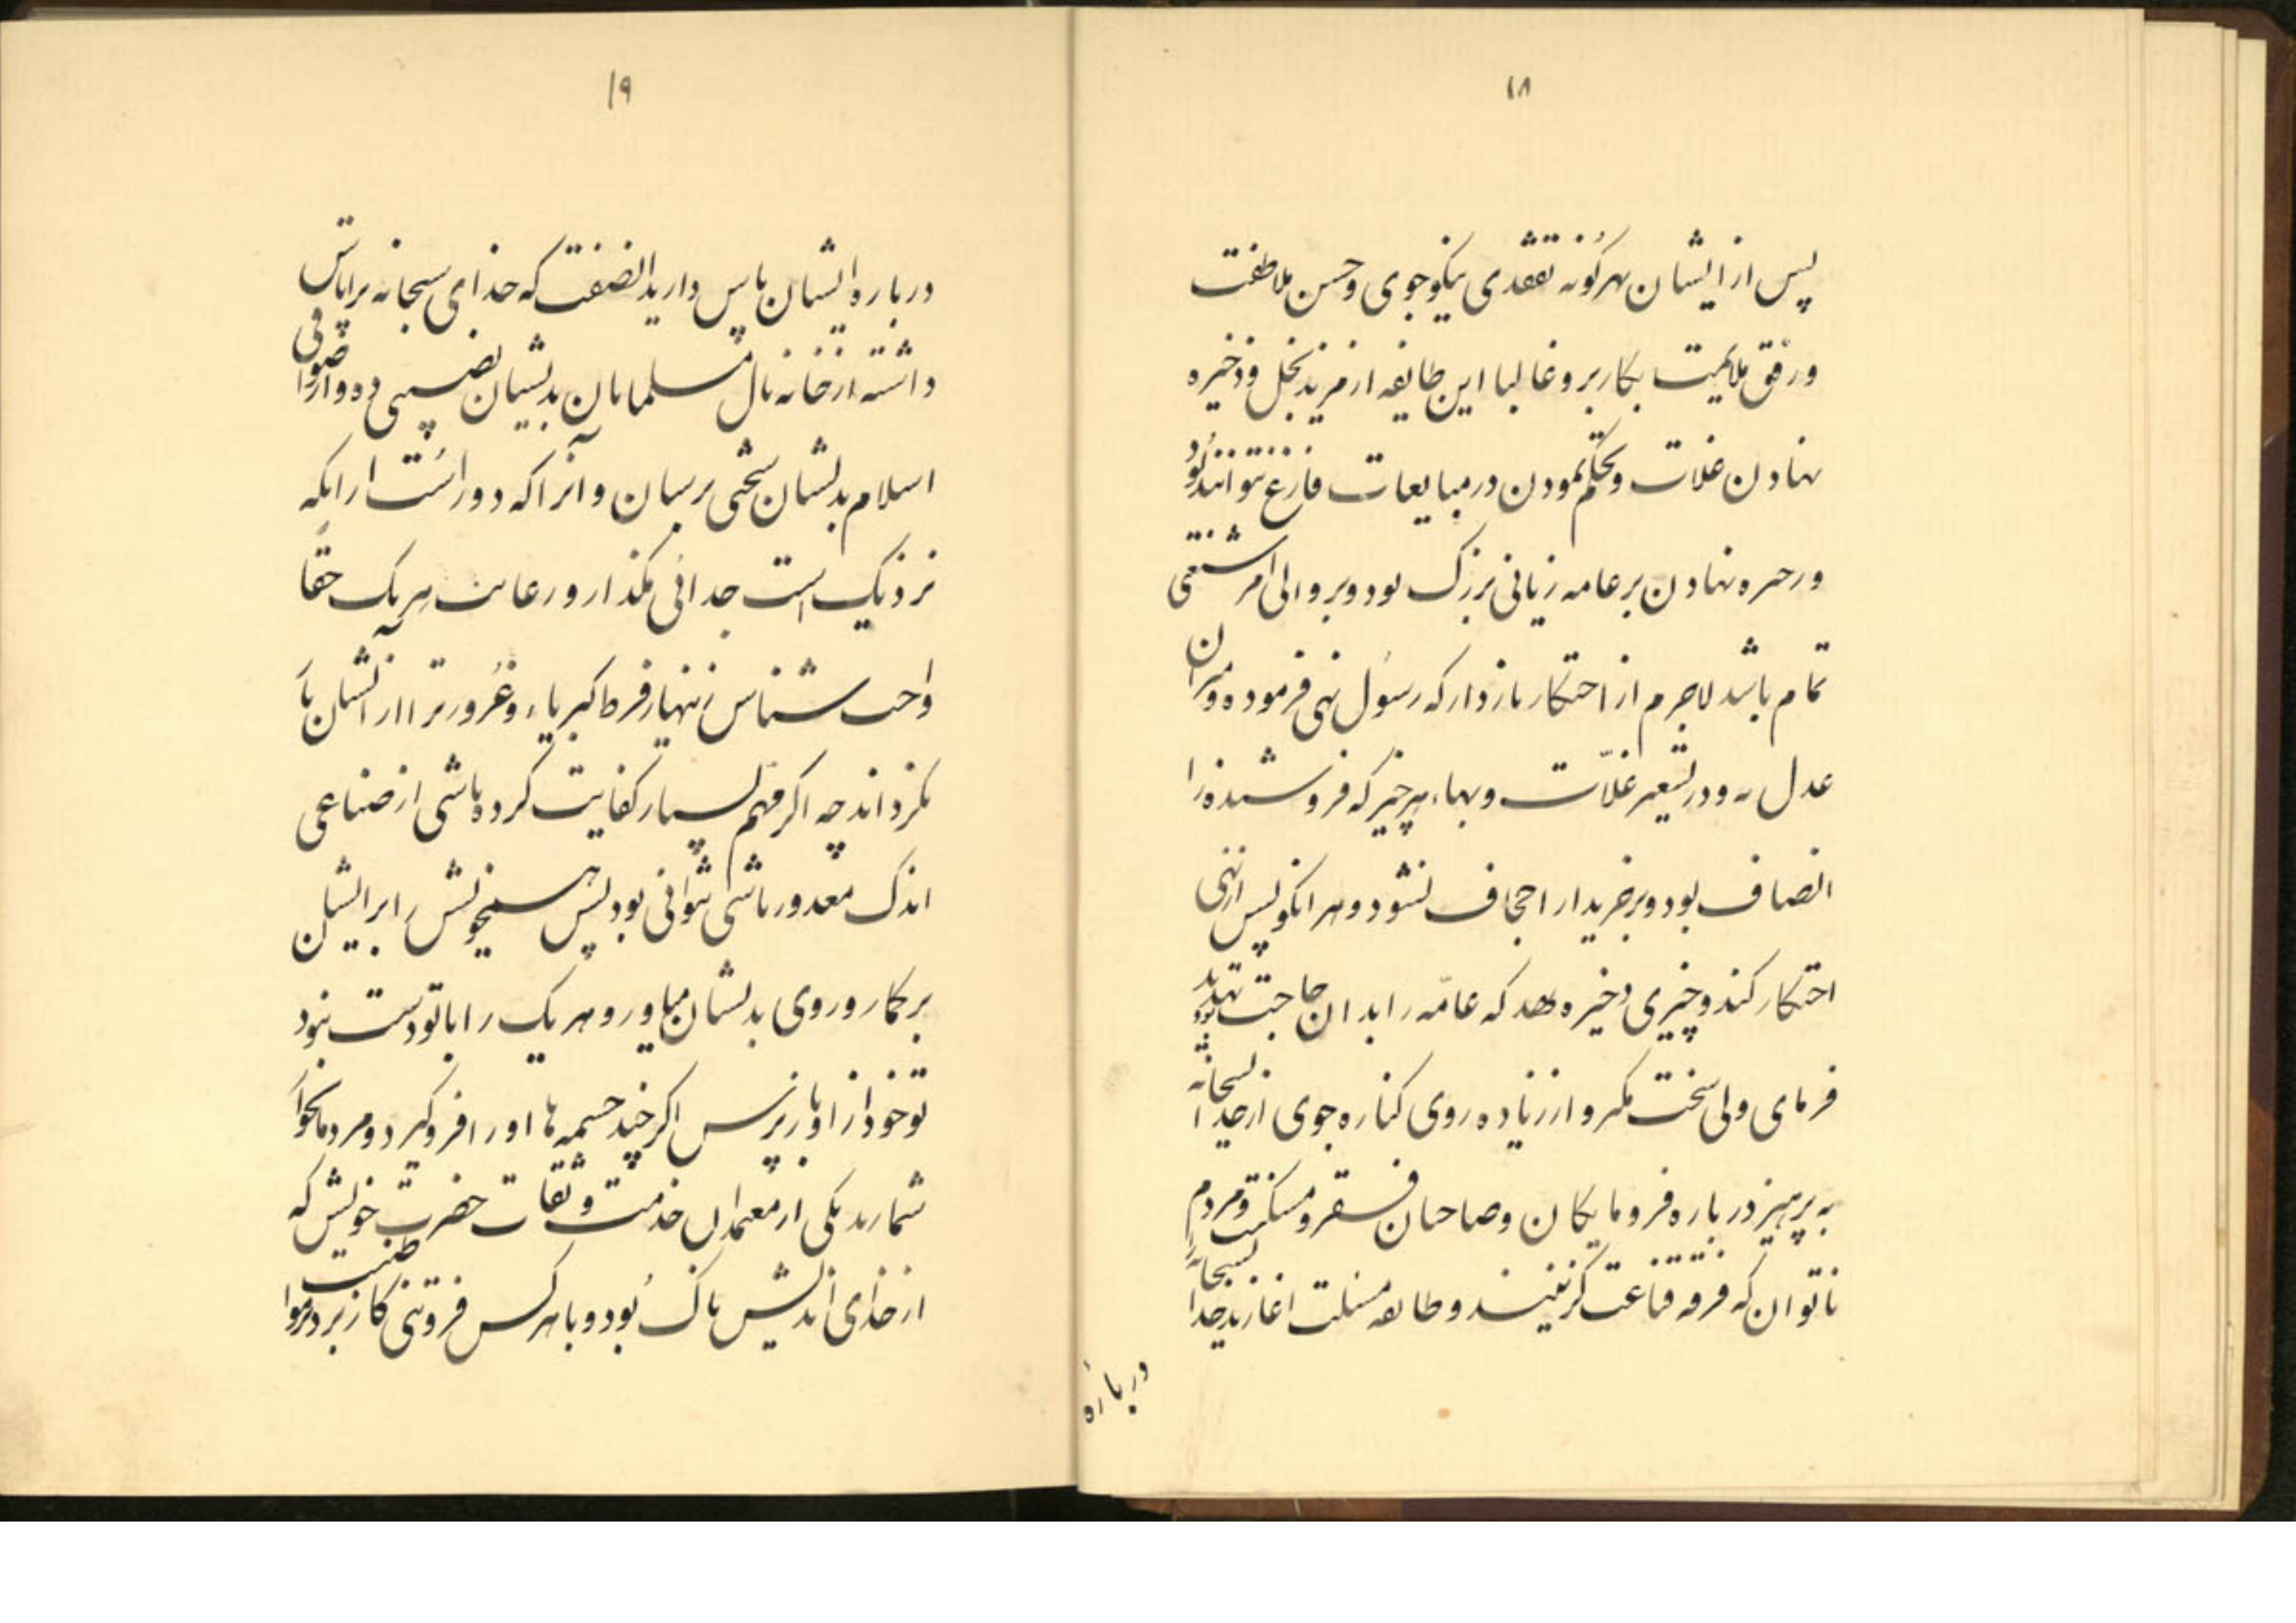 ۱۸
پس از ایشان هرگونه تفقدی نیکو جوی و حسن ملاطفت
و رفق ملایمت بکار بر و غالبا این طایفه از مزید بخل و ذخیره
نهادن غلات و تحکم نمودن در مبایعات فارغ نتوانند بود
و ذخیره نهادن بر عامه زیانی بزرک بود و بر والی امر منقصتی
تمام باشد لاجرم از احتکار بازدار که رسول نهی فرموده و میزان
عدل نه و در تسعیر غلّات و بهاء هر چیز که فروشنده را
انصاف بود و بر خریدار اجحاف نشود و هر انکو پس از نهی
احتکار کند و چیزی ذخیره نهد که عامّه را بدان حاجت بود تهدید
فرمای ولی سخت مکیر و از زیاده روی کناره جوی از خدا سبحانه
به پرهیز درباره فرومایکان و صاحبان فقر و مسکنت و مردم
ناتوان که فرقه قناعت کزینند و طایفه مسئلت اغازند خدا سبحانه را
درباره
۱۹
درباره ایشان پاس دارید الضفت که خدای سبحانه بر پاس
داشته از خانه مال مسلمانان بدیشان نصیبی ده و از صوافی
اسلام بدیشان سخی برسان و آنرا که دور است از انکه
نزدیک است جدائی مکذار و رعایت هر یک حقا
واجب شناس زینهار فرط کبریاء و غرور ترا از ایشان باز
نکرداند چه اکر مهم بسیار کفایت کرده باشی از ضیاعی
اندک معذور باشی نتوانی بود پس همت خویش را بر ایشان
بر کمار و روی بدیشان میاور و هر یک را با تو دست نبود
تو خود از او باز پرس اکر چند چشمها او را فرو کیرد و مردمان خوار
شمارند یکی از معتمدان خدمت و ثقات حضرت خویش که
از خدای اندیش پاک بود و با هر کس فروتنی کار بر در طلب